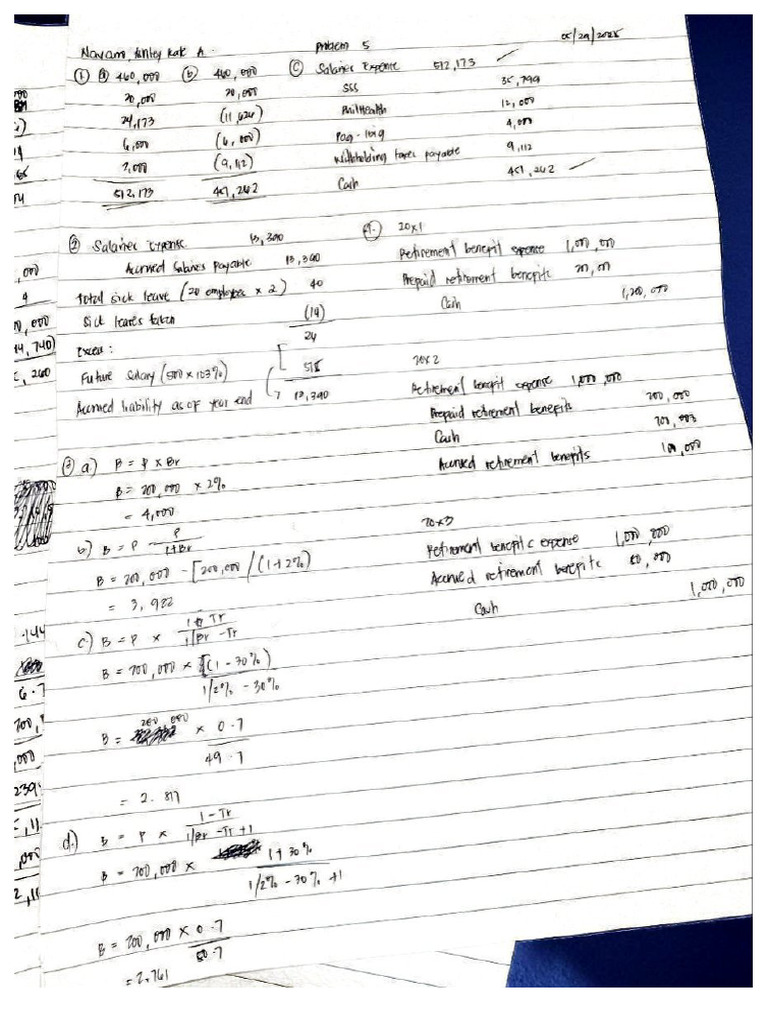 Problem 5
05/29/2025
① ⓐ 460,000 ⓑ 460,000
20,000 20,000
24,173 (11,626)
6,000 (6,000)
2,000 (9,112)
512,173 457,262
ⓒ Salaries Expense 512,173 ✓
SSS 35,799
Philhealth 12,000
Pag-ibig 4,000
Withholding taxes payable 9,112
Cash 451,262 ✓
② Salaries Expense 13,390
Accrued Salaries Payable 13,390
Total sick leave (20 employees x 2) 40
Sick leaves taken (14)
Excess: 26
Future Salary (500 x 103%) 515
Accrued liability as of year end 13,390
③ a.) B = P x Br
B = 200,000 x 2%
= 4,000
b) B = P - P / 1+Br
B = 200,000 - [200,000 / (1+2%)
= 3,922
c.) B = P x 1 - Tr / 1/Br - Tr
B = 200,000 x (1 - 30%) / 1/2% - 30%
B = 200,000 x 0.7 / 49.7
= 2.817
d.) B = P x 1 - Tr / 1/Br - Tr + 1
B = 200,000 x 1+30% / 1/2% - 30% +1
B = 200,000 x 0.7 / 50.7
= 2,761
4. 20x1
Retirement benefit expense 1,000,000
Prepaid retirement benefits
Cash 1,200,000
20x2
Retirement benefit expense 1,000,000
Prepaid retirement benefits 200,000
Cash
Accrued retirement benefits 100,000
20x3
Retirement benefits expense 1,000,000
Accrued retirement benefits 80,000
Cash